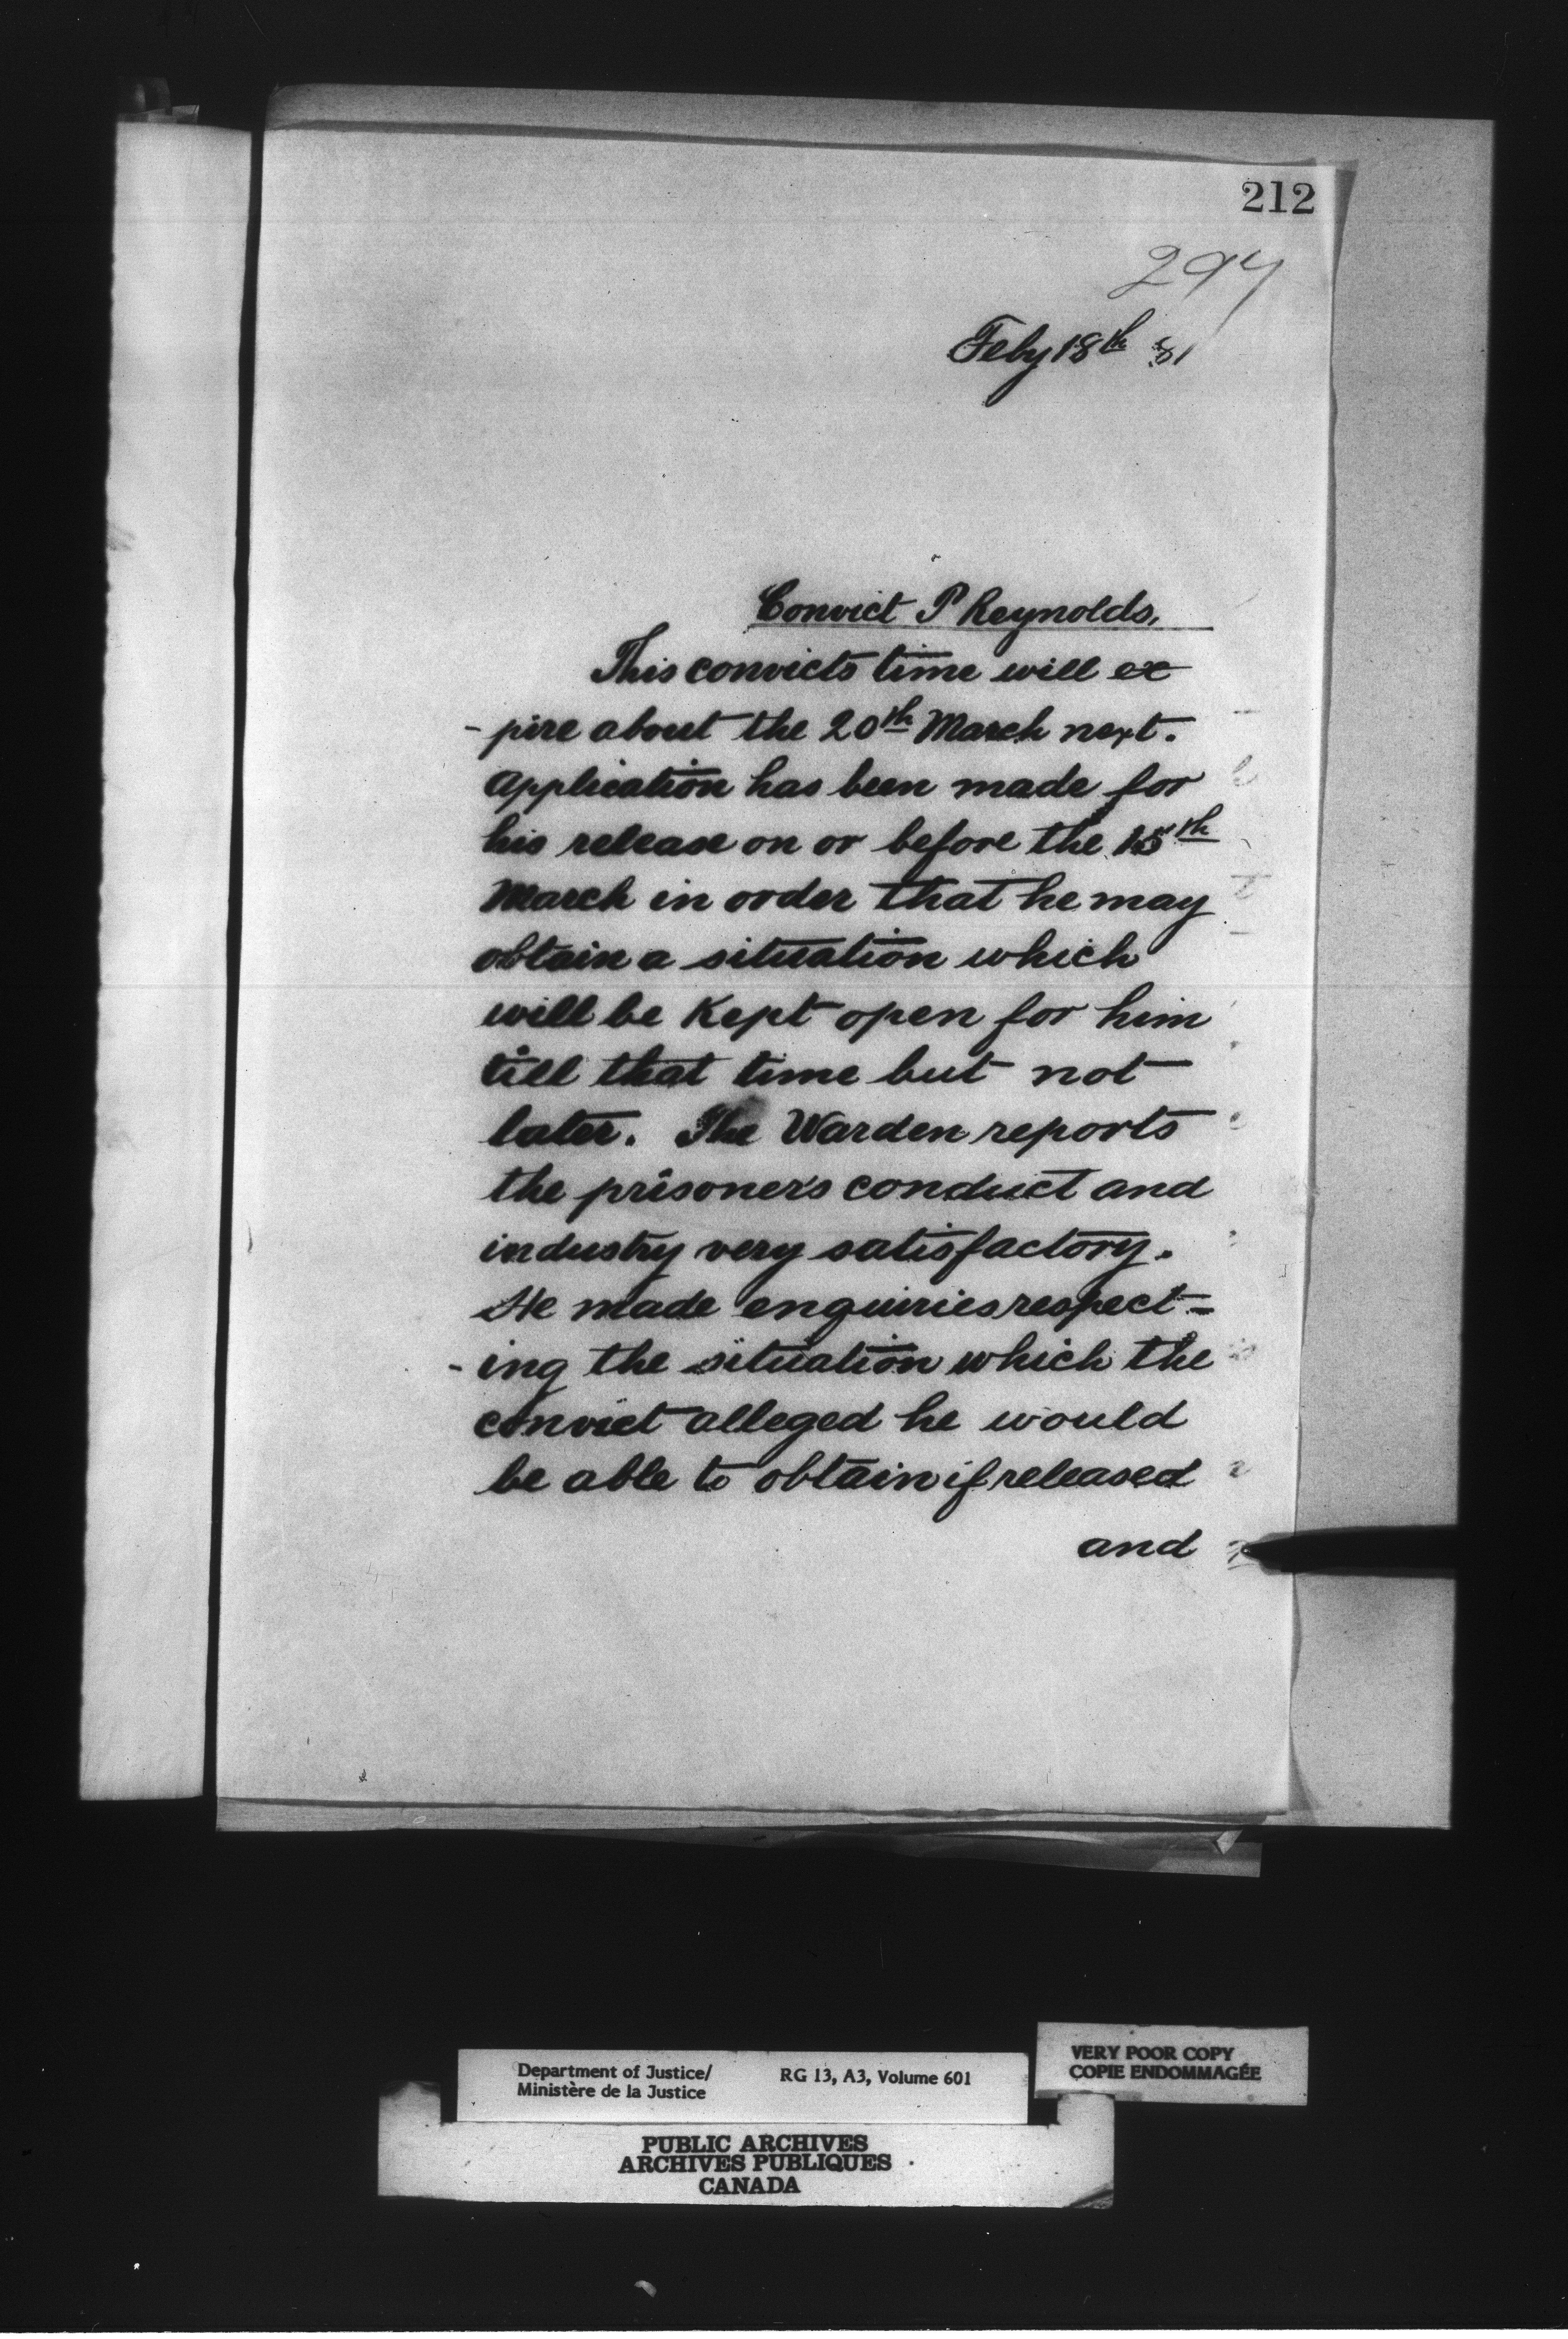 212
297
Feby 18th 81
Convict P Reynolds,
This convicts time will ex
- pire about the 20th March next.
Application has been made for
his release on or before the 15th
March in order that he may
obtain a situation which
will be Kept open for him
till that time but not
later. The Warden reports
the prisoner's conduct and
industry very satisfactory.
He made enquiries respect=
- ing the situation which the
convict alleged he would
be able to obtain if released
and
Department of Justice/
Ministère de la Justice
RG 13, A3, Volume 601
VERY POOR COPY
COPIE ENDOMMAGÉE
PUBLIC ARCHIVES
ARCHIVES PUBLIQUES
CANADA